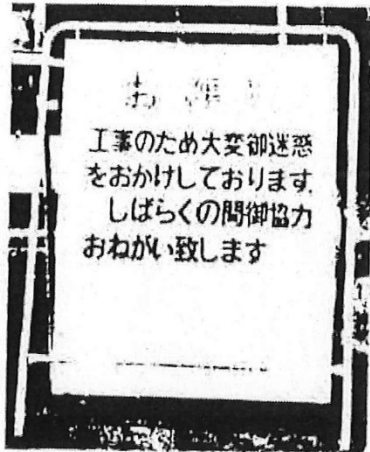 お願い
工事のため大変御迷惑
をおかけしております.
しばらくの間御協力
おねがい致します